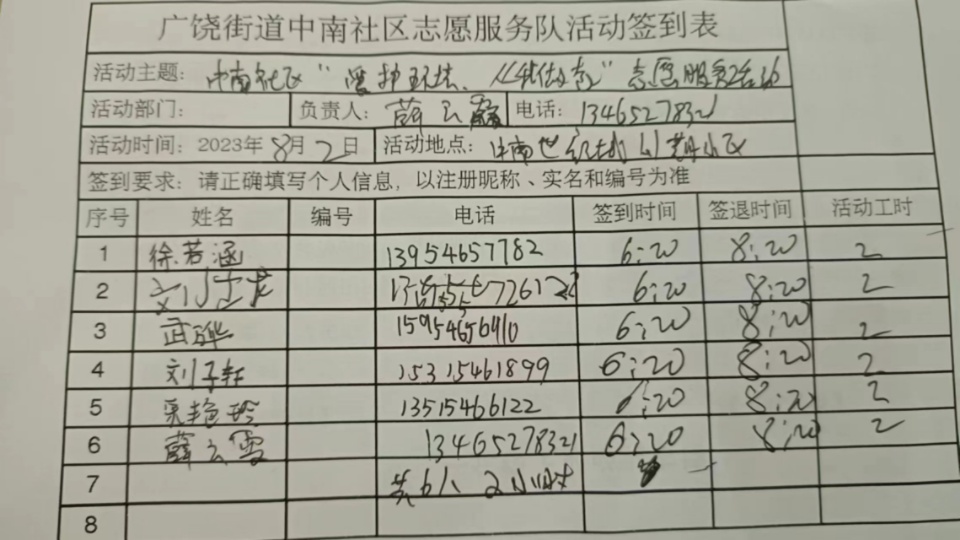 广饶街道中南社区志愿服务队活动签到表
活动主题：中南社区“爱护环境、从我做起”志愿服务活动
活动部门： 负责人：薛云霞 电话：13465278321
活动时间：2023年8月2日 活动地点：中南世纪城
签到要求：请正确填写个人信息，以注册昵称、实名和编号为准
序号 姓名 编号 电话 签到时间 签退时间 活动工时
1 徐若涵 13954657782 6:20 8:20 2
2 6:20 8:20 2
3 武骅 15954656410 6:20 8:20 2
4 刘子轩 15315461899 6:20 8:20 2
5 艳玲 13515466122 6:20 8:20 2
6 薛云霞 13465278321 6:20 8:20 2
7 共6人 2小时
8